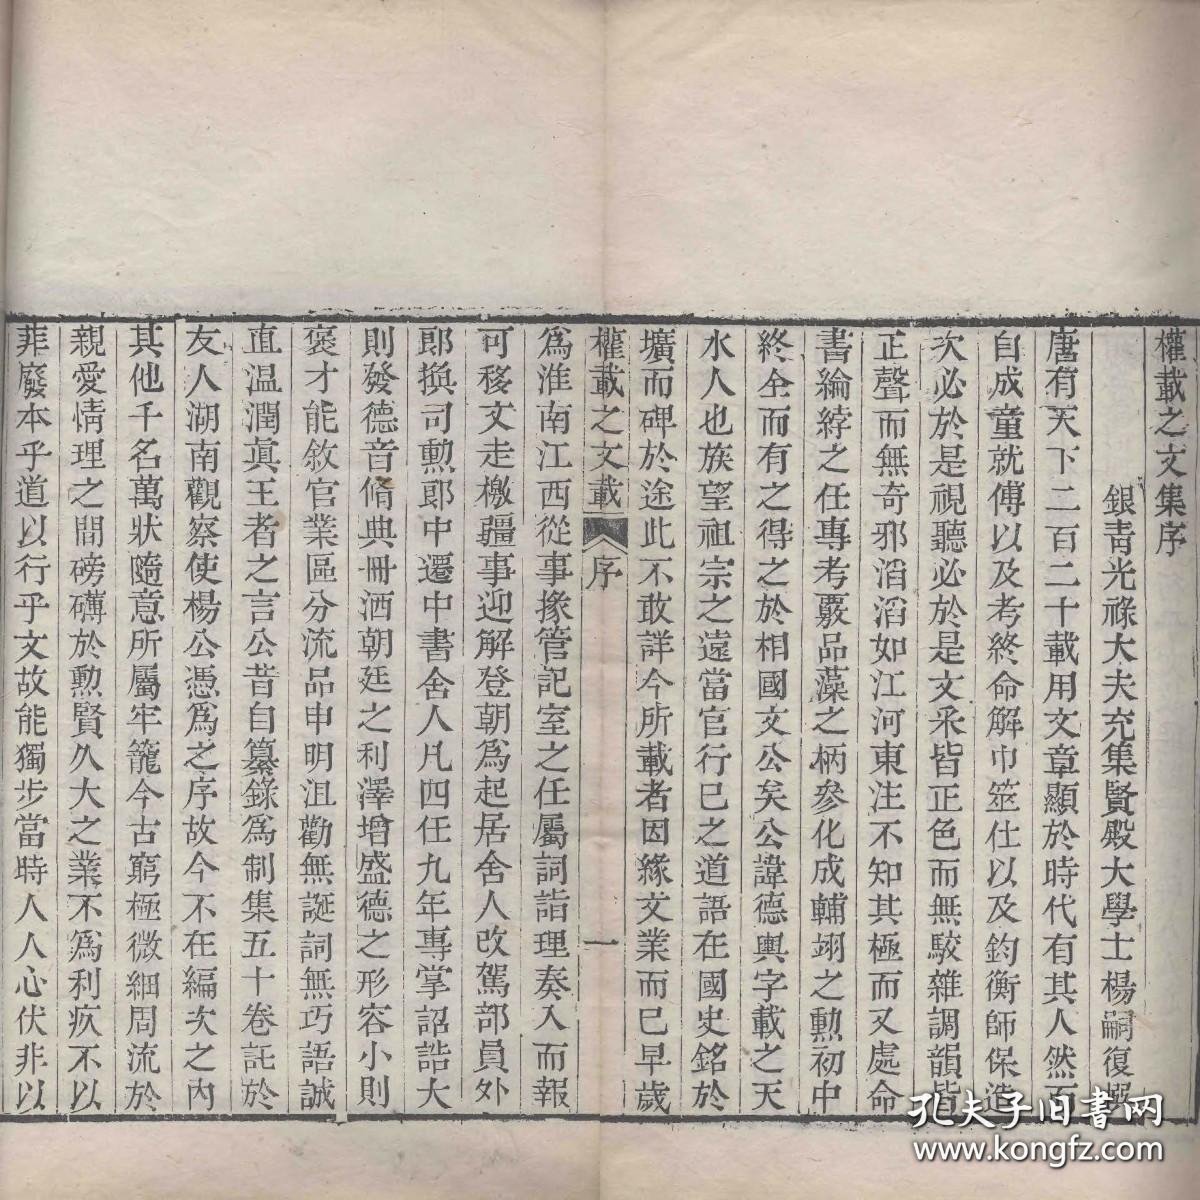 權載之文集序
銀靑光祿大夫充集賢殿大學士楊嗣復撰
唐有天下二百二十載用文章顯於時代有其人然而
自成童就傅以及考終命解巾筮仕以及鈞衡師保造
次必於是視聽必於是文采皆正色而無駮雜調韻皆
正聲而無奇邪滔滔如江河東注不知其極而又處命
書綸綍之任專考覈品藻之柄參化成輔翊之勲初中
終全而有之得之於相國文公矣公諱德輿字載之天
水人也族望祖宗之遠當官行已之道語在國史銘於
壙而碑於途此不敢詳今所載者因緣文業而已早歲
權載之文載 序 一
爲淮南江西從事掾管記室之任屬詞詣理奏入而報
可移文走檄疆事迎解登朝爲起居舍人改駕部員外
郎換司勲郎中遷中書舍人凡四任九年專掌詔誥大
則發德音脩典冊洒朝廷之利澤增盛德之形容小則
褒才能敘官業區分流品申明沮勸無誕詞無巧語誠
直温潤眞王者之言公昔自纂錄爲制集五十卷託於
友人湖南觀察使楊公憑爲之序故今不在編次之內
其他千名萬狀隨意所屬牢籠今古窮極微細周流於
親愛情理之間磅礴於勲賢久大之業不爲利疚不以
菲廢本乎道以行乎文故能獨步當時人人心伏非以
孔夫子旧书网
www.kongfz.com